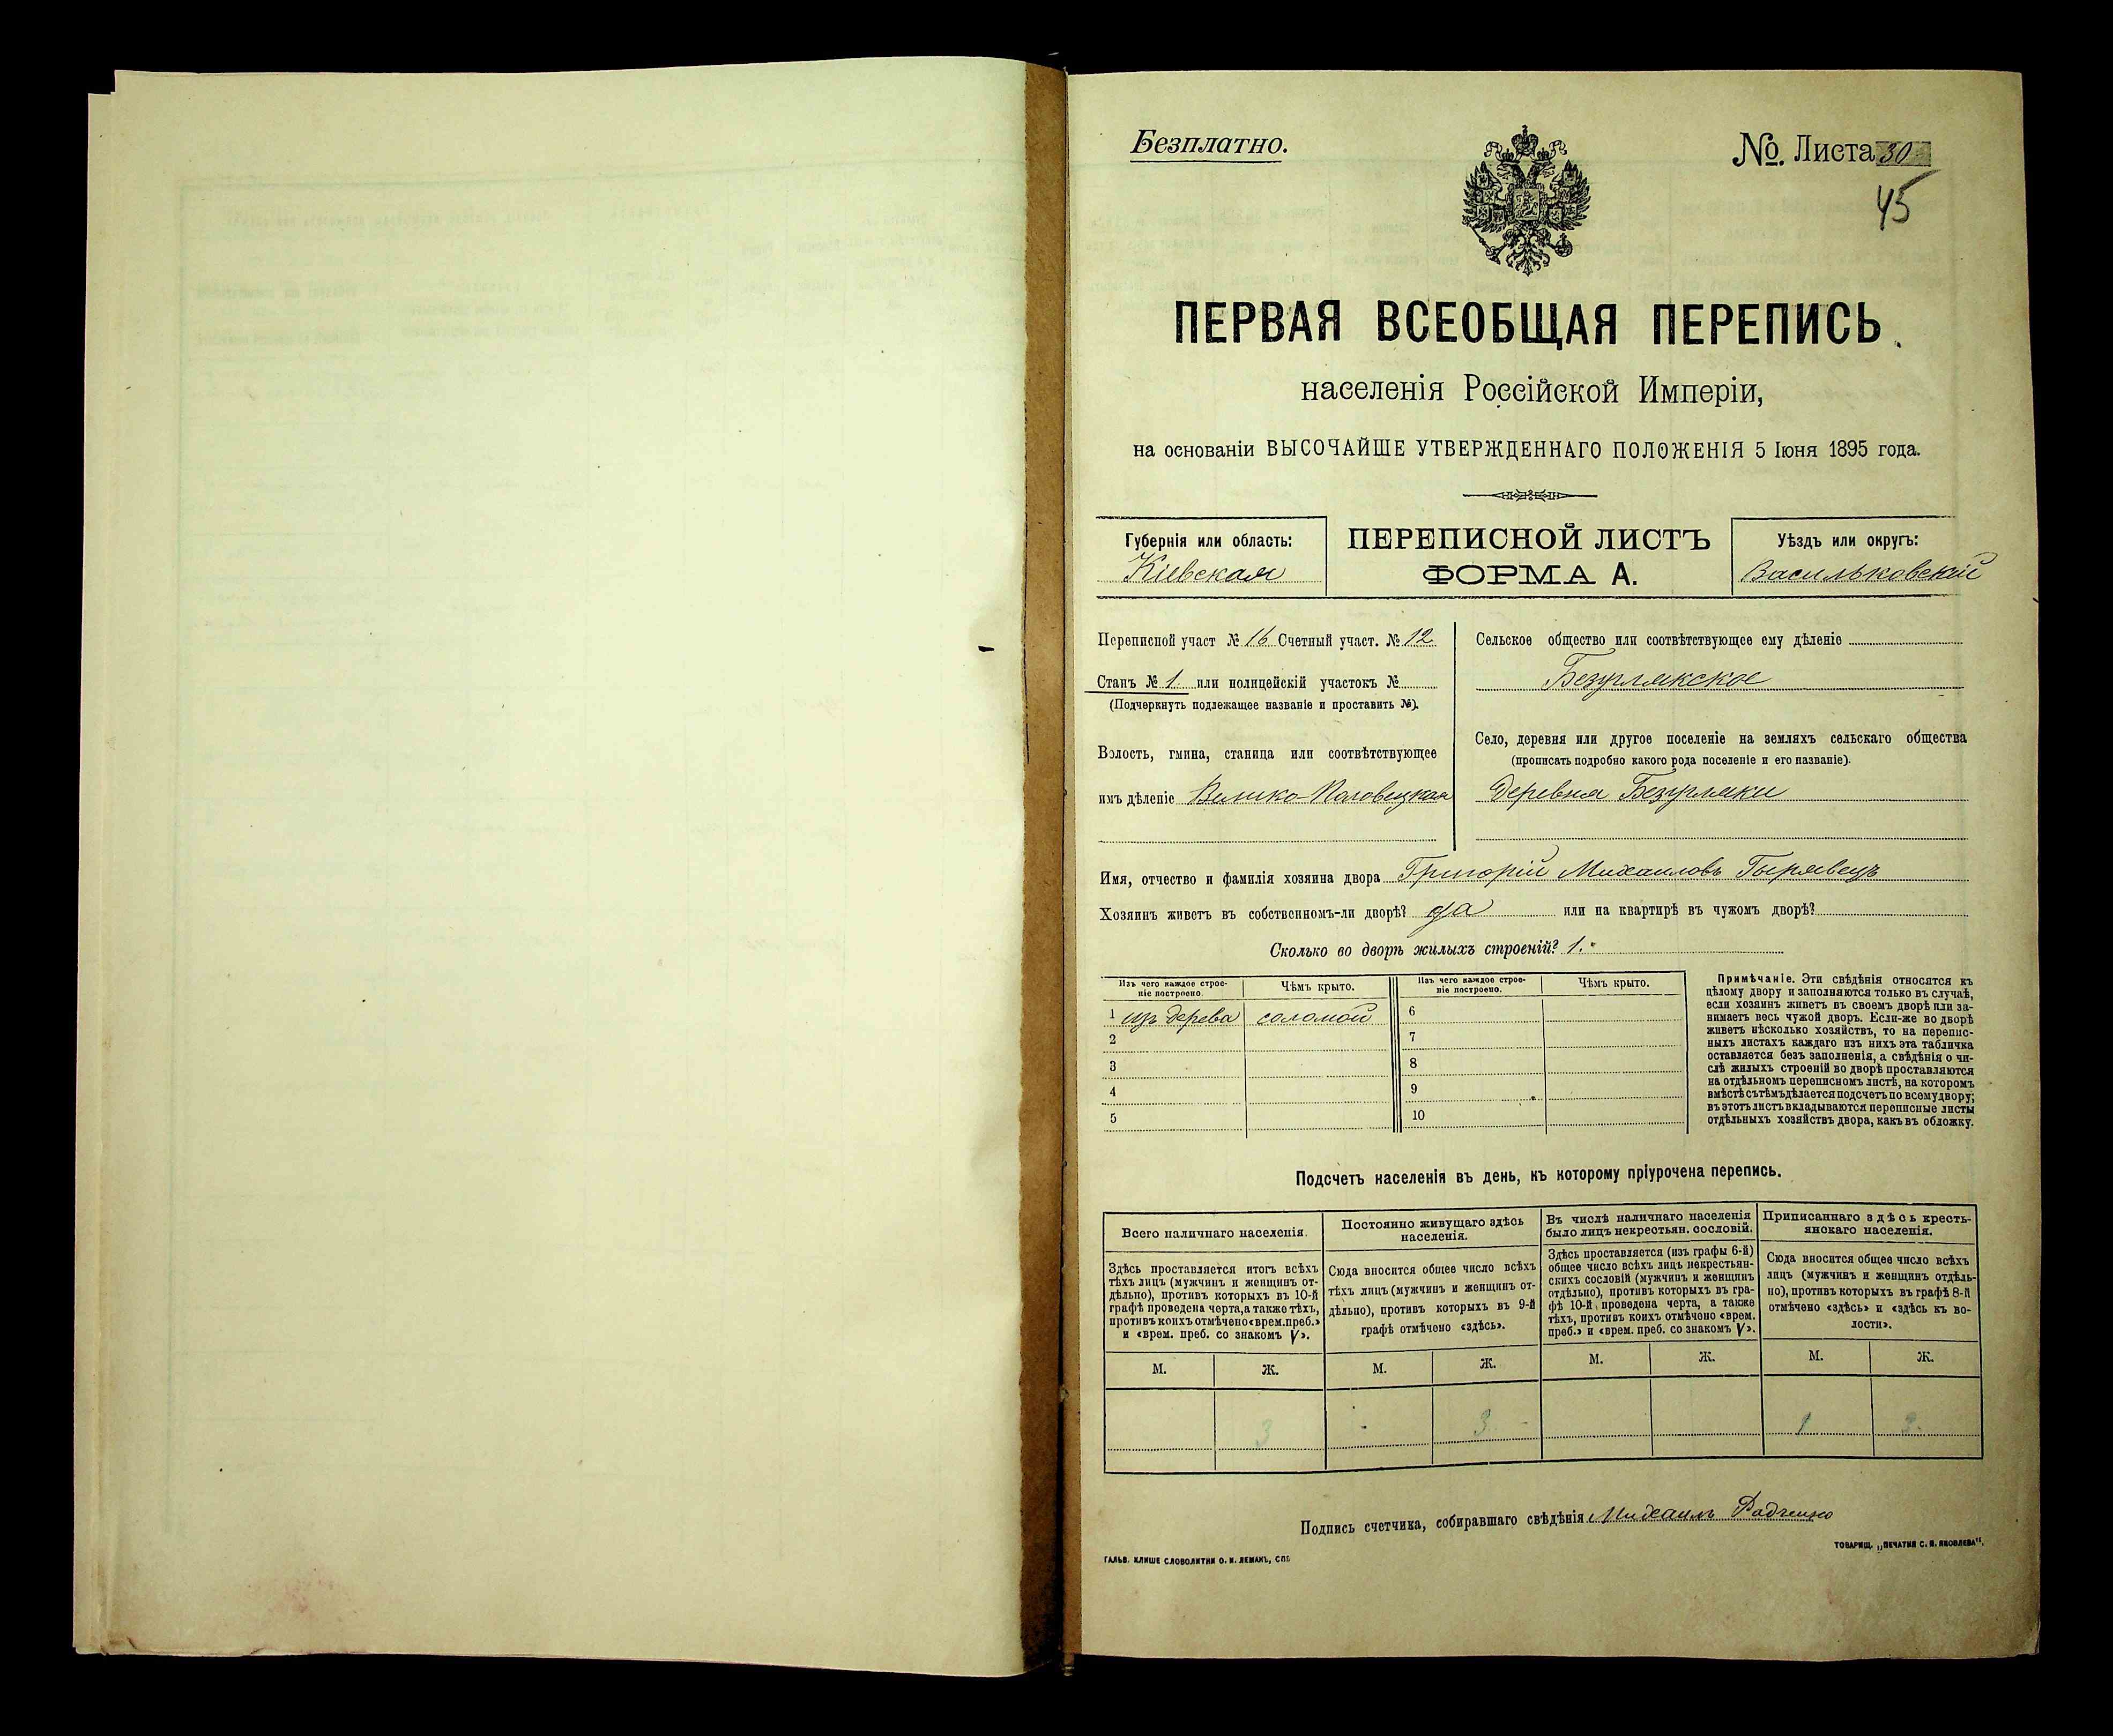 Безплатно.
№. Листа 30
45
ПЕРВАЯ ВСЕОБЩАЯ ПЕРЕПИСЬ
населенія Россійской Имперіи,
на основаніи ВЫСОЧАЙШЕ УТВЕРЖДЕННАГО ПОЛОЖЕНІЯ 5 Іюня 1895 года.
Губернія или область:
Кіевская
ПЕРЕПИСНОЙ ЛИСТЪ
ФОРМА А.
Уѣздъ или округъ:
Васильковскій
Переписной участ № 16 Счетный участ. № 12
Станъ № 1. или полицейскій участокъ №
(Подчеркнуть подлежащее названіе и проставить №).
Волость, гмина, станица или соотвѣтствующее
имъ дѣленіе Велико-Половецкая
Сельское общество или соотвѣтствующее ему дѣленіе
Безуглякское
Село, деревня или другое поселеніе на земляхъ сельскаго общества
(прописать подробно какого рода поселеніе и его названіе).
Деревня Безугляки
Имя, отчество и фамилія хозяина двора Григорій Михаиловъ Гырявецъ
Хозяинъ живетъ въ собственномъ-ли дворѣ? да или на квартирѣ въ чужомъ дворѣ?
Сколько во дворѣ жилыхъ строеній? 1.
Изъ чего каждое строе-
ніе построено.
Чѣмъ крыто.
1 изъ дерева соломой
2
3
4
5
Изъ чего каждое строе-
ніе построено.
Чѣмъ крыто.
6
7
8
9
10
Примѣчаніе. Эти свѣдѣнія относятся къ
цѣлому двору и заполняются только въ случаѣ,
если хозяинъ живетъ въ своемъ дворѣ или за-
нимаетъ весь чужой дворъ. Если-же во дворѣ
живетъ нѣсколько хозяйствъ, то на перепис-
ныхъ листахъ каждаго изъ нихъ эта табличка
оставляется безъ заполненія, а свѣдѣнія о чи-
слѣ жилыхъ строеній во дворѣ проставляются
на отдѣльномъ переписномъ листѣ, на которомъ
вмѣстѣ съ тѣмъ дѣлается подсчетъ по всему двору;
въ этотъ листъ вкладываются переписные листы
отдѣльныхъ хозяйствъ двора, какъ въ обложку.
Подсчетъ населенія въ день, къ которому пріурочена перепись.
Всего наличнаго населенія.
Здѣсь проставляется итогъ всѣхъ
тѣхъ лицъ (мужчинъ и женщинъ от-
дѣльно), противъ которыхъ въ 10-й
графѣ проведена черта, а также тѣхъ,
противъ коихъ отмѣчено «врем. преб.»
и «врем. преб. со знакомъ V».
М. Ж.
3
Постоянно живущаго здѣсь
населенія.
Сюда вносится общее число всѣхъ
тѣхъ лицъ (мужчинъ и женщинъ от-
дѣльно), противъ которыхъ въ 9-й
графѣ отмѣчено «здѣсь».
М. Ж.
- 3 -
Въ числѣ наличнаго населенія
было лицъ некрестьян. сословій.
Здѣсь проставляется (изъ графы 6-й)
общее число всѣхъ лицъ некрестьян-
скихъ сословій (мужчинъ и женщинъ
отдѣльно), противъ которыхъ въ гра-
фѣ 10-й проведена черта, а также
тѣхъ, противъ коихъ отмѣчено «врем.
преб.» и «врем. преб. со знакомъ V».
М. Ж.
Приписаннаго здѣсь кресть-
янскаго населенія.
Сюда вносится общее число всѣхъ
лицъ (мужчинъ и женщинъ отдѣль-
но), противъ которыхъ въ графѣ 8-й
отмѣчено «здѣсь» и «здѣсь къ во-
лости».
М. Ж.
1 3.
Подпись счетчика, собиравшаго свѣдѣнія Михаилъ Радченко
ГАЛЬВ. КЛИШЕ СЛОВОЛИТНИ О. И. ЛЕМАНЪ, СПБ.
ТОВАРИЩ. „ПЕЧАТНЯ С. П. ЯКОВЛЕВА".